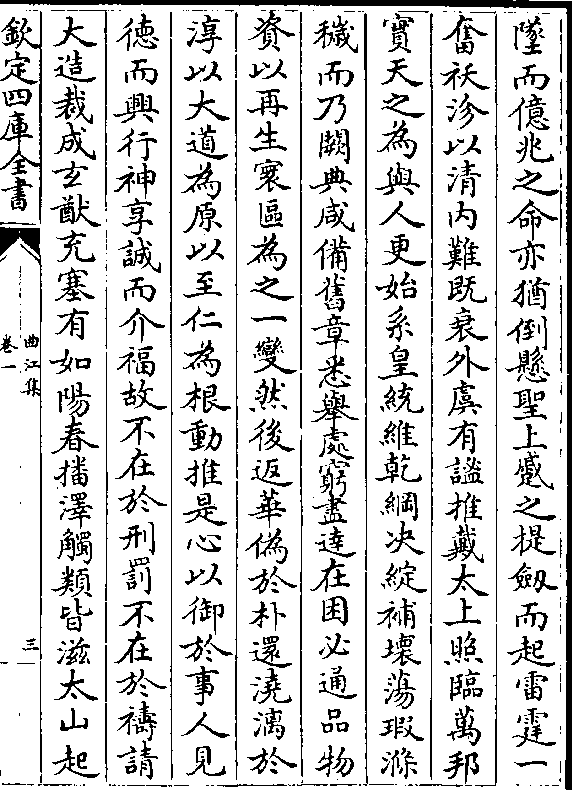 墜而億兆之命亦猶倒懸聖上慼之提劔而起雷霆一
奮祅沴以清内難既衰外虞有謐推戴太上照臨萬邦
實天之為與人更始系皇統維乾綱决綻補壞蕩瑕滌
穢而乃闕典咸備舊章悉舉處窮盡達在困必通品物
資以再生寰區為之一變然後返華偽於朴還澆漓於
淳以大道為原以至仁為根動推是心以御於事人見
徳而興行神享誠而介福故不在於刑罰不在於禱請
大造裁成玄猷充塞有如陽春播澤觸類皆滋太山起
欽定四庫全書
曲江集
卷一
三